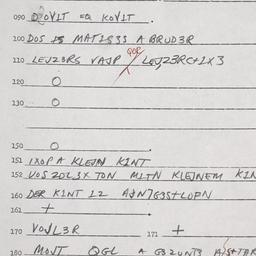 090 D?OVIT =Q KOVIT .
100 DOS IS MAT1S33 A BRUD3R
QOR
110 LEVZ3RS VAJP / LEJZ3RC+1X3
120 O
130 O
150 O
151 IXOP A KLEJN KINT
152 VOS ZOL3X TON MITN KLEJNEM KIN
160 DER KINT IZ AJN7G3S+LOFN
161 +
170 VOJL3R 171 +
180 MOJT QGL A G3ZUNT3